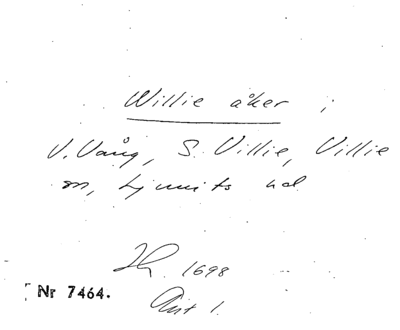 Willie åker i
V. Vång, S. Villie, Villie
sn, Ljunits hd
1698
Nr 7464.
Akt 1.